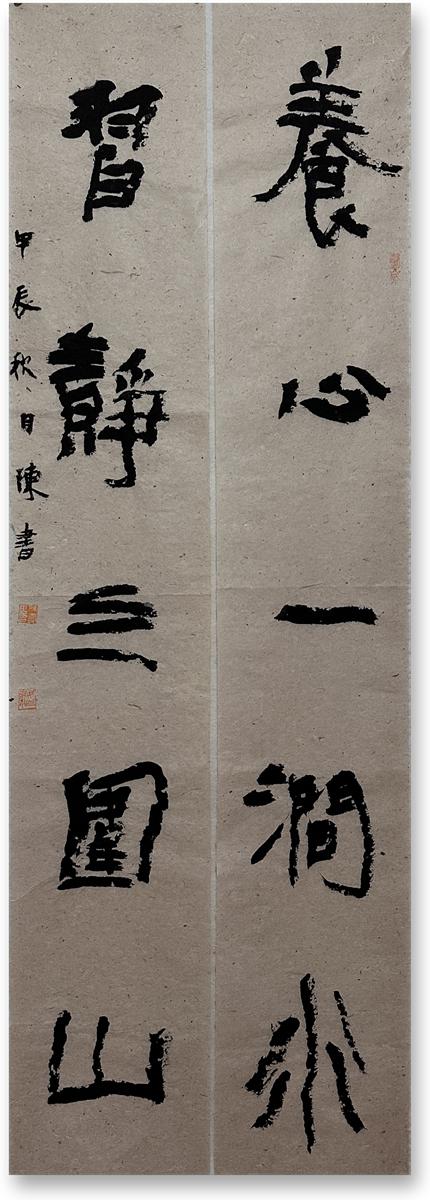 養心一澗水
習靜三圍山
甲辰秋日陳書